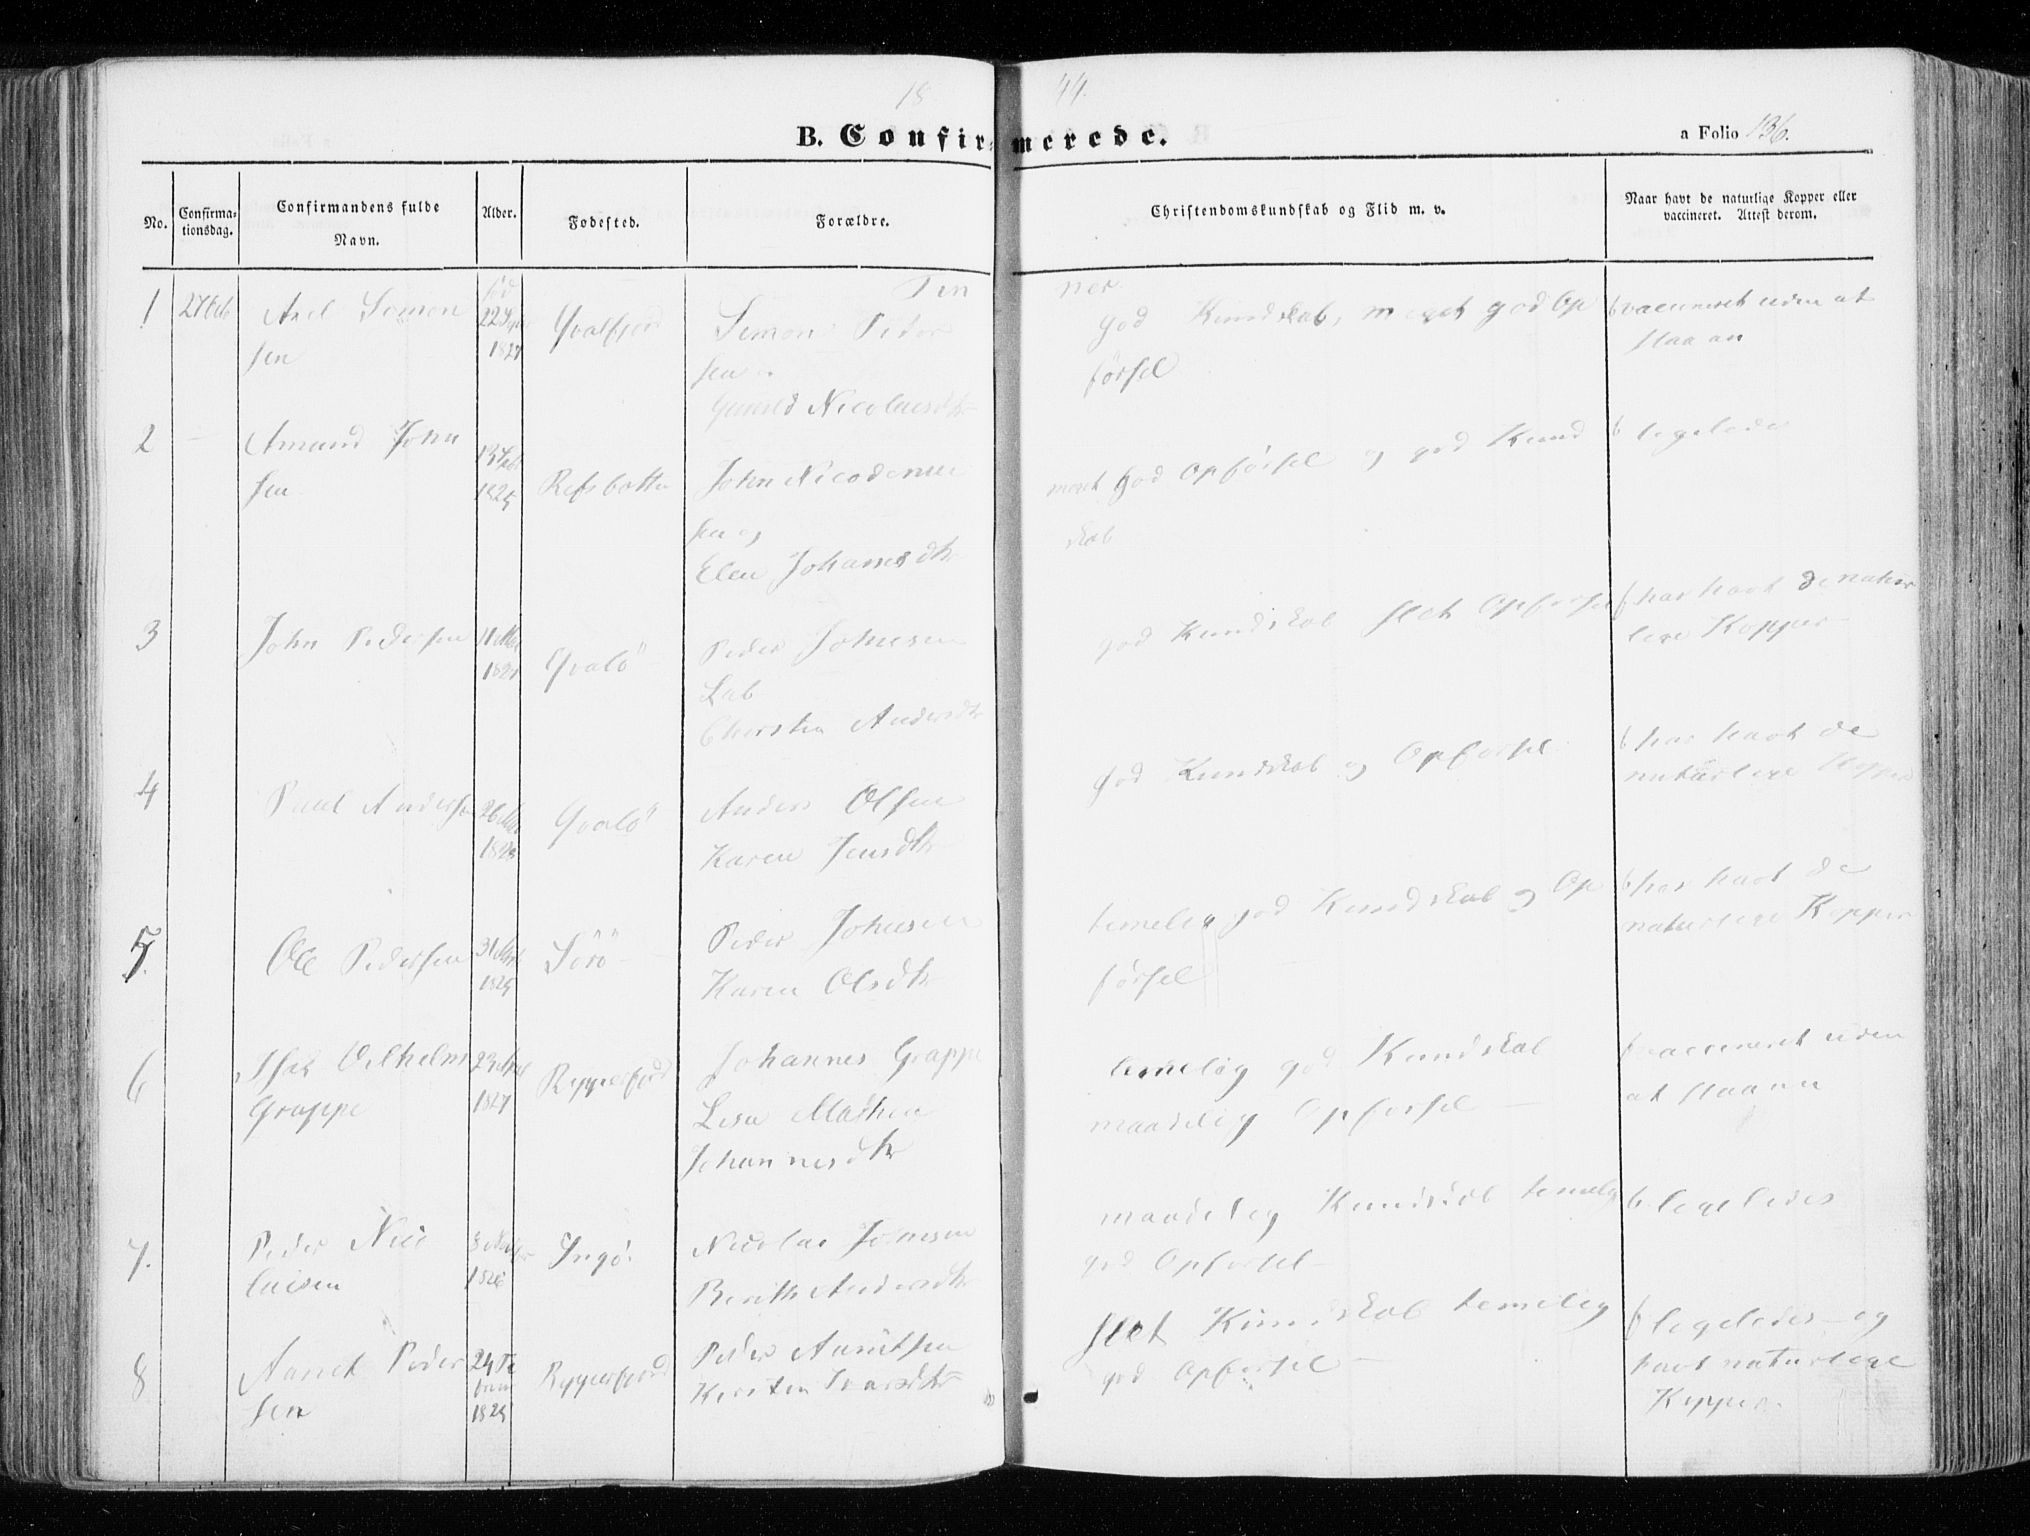 18 44.
B. Confirmerede.
a Folio 136.
No.
Confirmationsdag.
Confirmandens fulde Navn.
Alder.
Fødested.
Forældre.
Christendomskundskab og Flid m. v.
Naar havt de naturlige Kopper eller vaccineret. Attest derom.
Finner
1 27 Feb Axel Simonsen
1827
Simon Pedersen
Nicolaisdtr
god Kundskab, meget god Opførsel
vaccineret uden at slaa an
2 Amund Johnsen
1825 Refsbotten
John Nicodemussen og
Elen Johannesdtr
meget god Opførsel og god Kundskab
ligeledes
3 John Pedersen
Qvalö
Peder Johnsen Lab
Chersten Andersdtr
god Kundskab slet Opførsel
har havt de naturlige Kopper
4 Paul Andersen
Qvalö
Anders Olsen
Karen Jensdtr
god Kundskab og Opførsel
har havt de naturlige Kopper
5. Ole Pedersen
1825 Sörö
Peder Johnsen
Karen Olsdtr
temelig god Kundskab og Opførsel
har havt de naturlige Kopper
6 Isak Vilhelm Grappe
1827 Reppefjord
Johannes Grappe
Lisa Mathea Johannesdtr
temelig god Kundskab
maadelig Opførsel
vaccineret uden at slaa an
7. Peder Nicolaisen
Ingö.
Nicolai Johnsen
Berith Andersdtr
maadelig Kundskab temelig god Opførsel
ligeledes
8 Pedersen
1825 Reppefjord
Peder
Kersten Ivarsdtr
slet Kundskab temelig god Opførsel
ligeledes og havt naturlige Kopper.